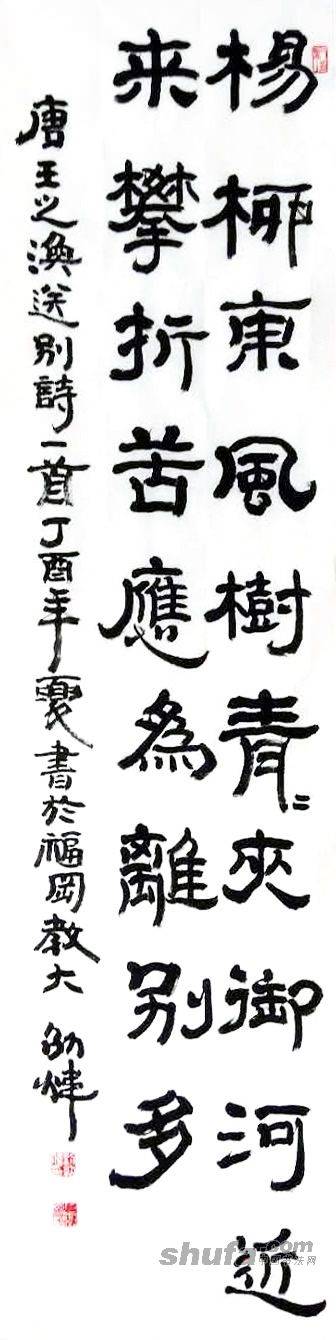 楊柳東風樹青〻夾御河近
来攀折苦應為離別多
唐王之渙送別詩一首丁酉年夏書於福岡教大
shufa.com